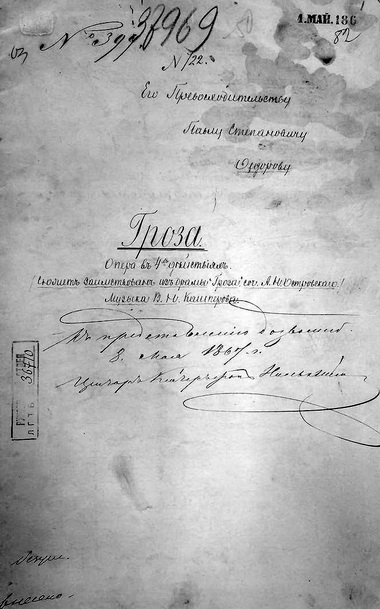 1. МАЙ. 186
82
N 122.
Его Превосходительству
Павлу Степановичу
Федорову
Гроза.
Опера въ 4хъ действіяхъ.
(сюжетъ заимствованъ изъ драмы "Гроза" соч. А. Н. Островскаго)
Музыка В. Н. Кашперова.
Къ представленію дозволено.
3. мая 1867 г.
Цензоръ
36710